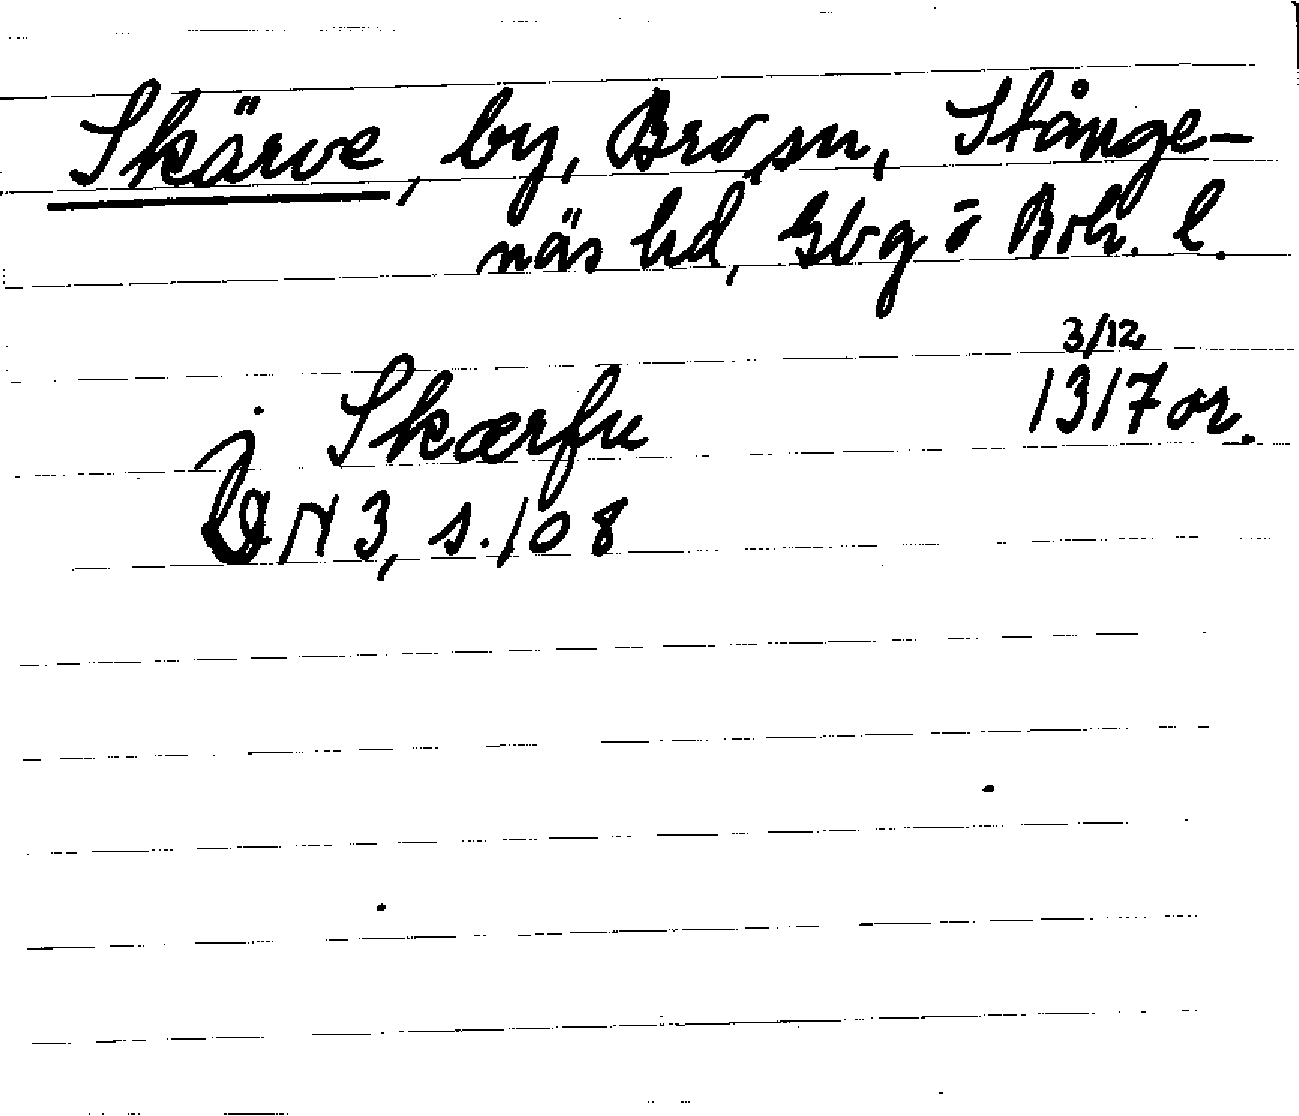 Skärve, by, Bro sn, Stånge-
näs hd, Gbg o Boh. l.
3/12
i Skærfu 1317 or.
DN 3, s. 108